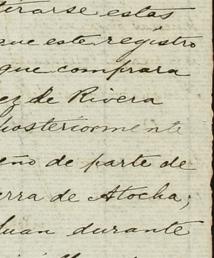 tirarse estas
que este registro
que comprara
ez de Rivera
posteriormente
eño de parte de
erra de Atocha;
Juan durante